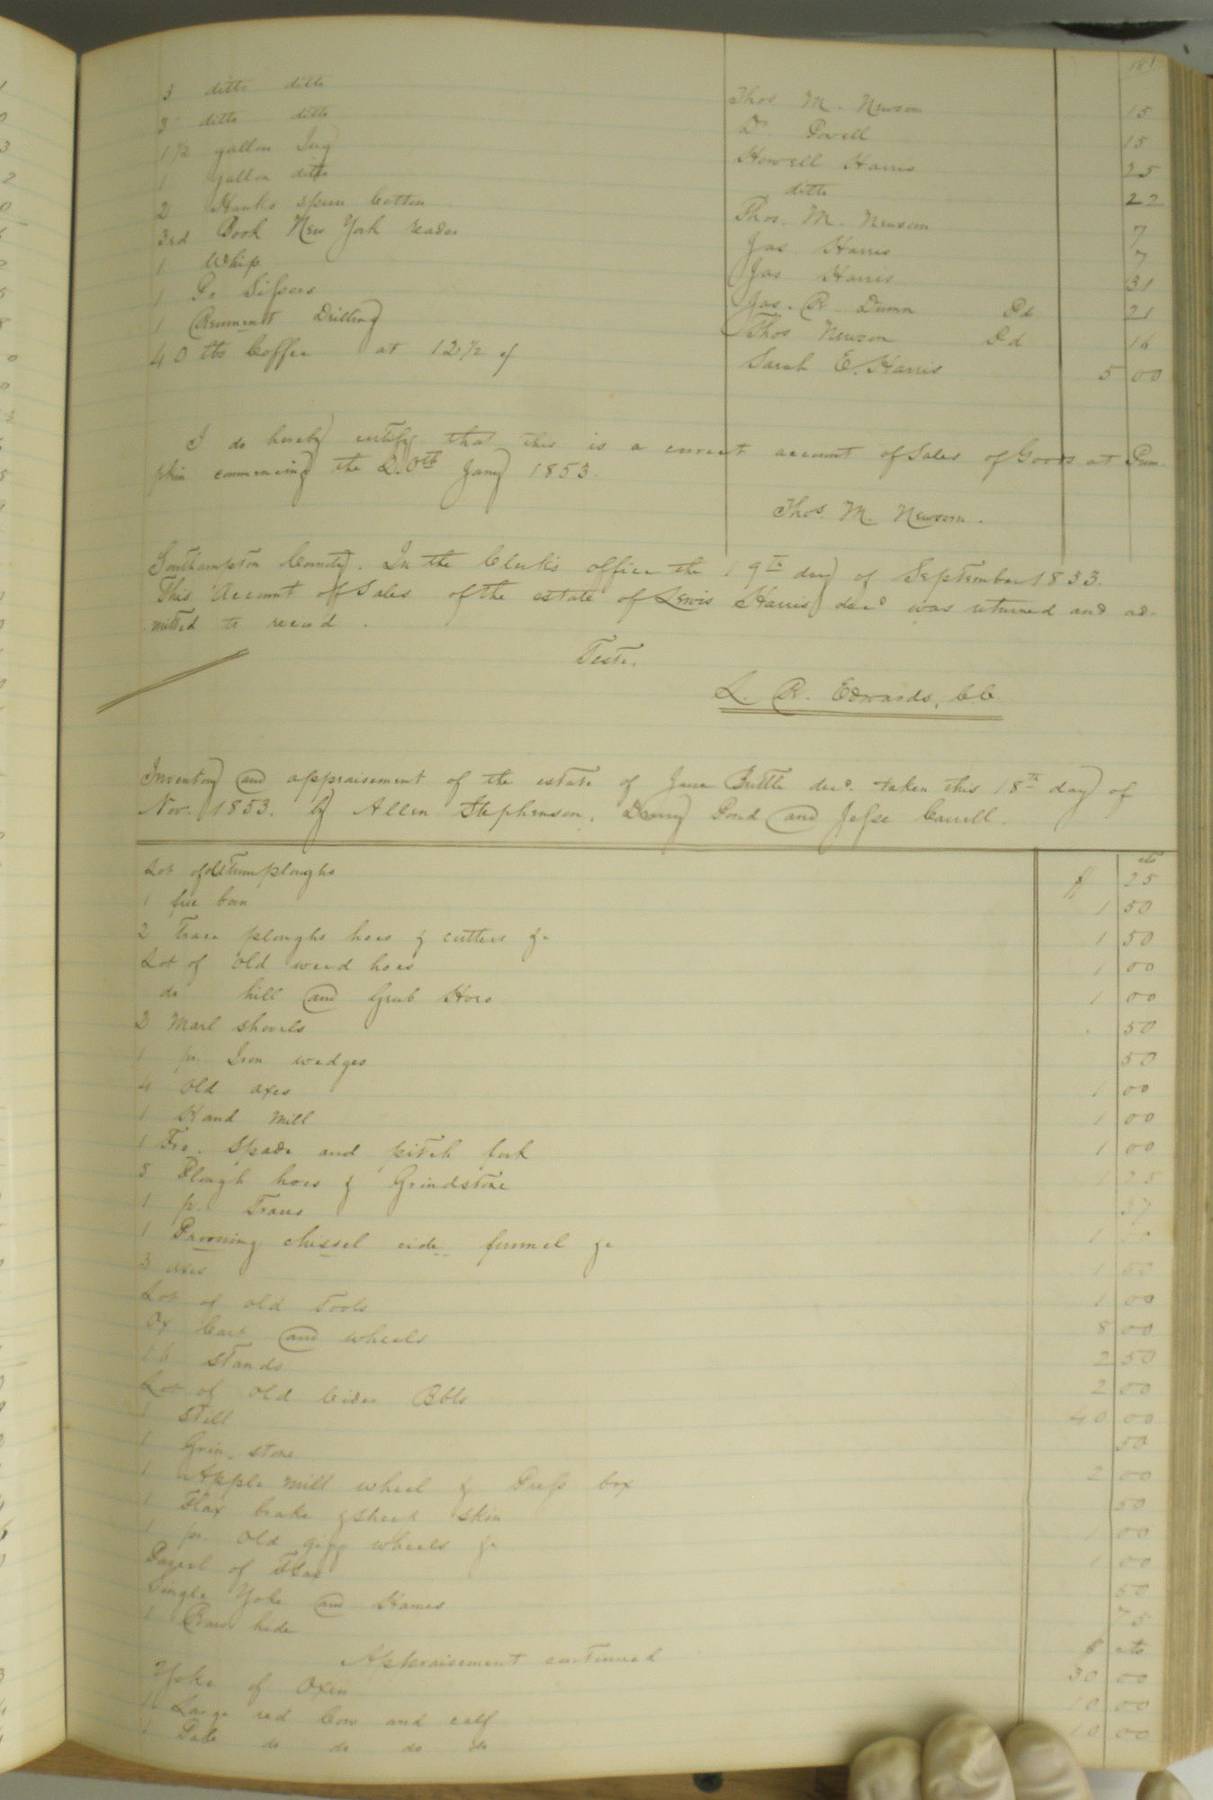 181
3 ditto ditto Thos M. Newsom 15
3 ditto ditto D. Powell 15
1 1/2 gallon Jug Howell Harris 25
1 gallon ditto ditto 22
2 Hanks spun Cotton Thos. M. Newsom 7
3rd Book New York reader Jas Harris 7
1 Whip Jas Harris 31
1 Pr Sissors Jas. R. Dunn Pd 21
1 Remnant Drilling Thos Newsom Pd 16
40 lbs Coffee at 12 1/2 ¢ Sarah E. Harris 5 00
I do hereby certify that this is a correct account of Sales of Goods at Pum
pkin commencing the 20th Jany 1853.
Thos. M. Newsom.
Southampton County. In the Clerk's office the 19th day of September 1853.
This Account of Sales of the estate of Lewis Harris decd was returned and ad-
mitted to record.
Teste.
L. R. Edwards, CC
Inventory and appraisement of the estate of Jane Britt decd. taken this 18th day of
Nov. 1853. by Allen Stephenson, Drewry Pond and Jesse Carrell.
cts
Lot of old ploughs $ 25
1 1 50
2 Trace ploughs hoes & cutters &c 1 50
Lot of old weed hoes 1 00
do hill and Grub Hoes 1 00
2 Marl shovels 50
1 pr. Iron wedges 50
4 old axes 1 00
1 Hand Mill 1 00
1 Fro. Spade and pitch fork 1 00
5 Plough hoes & Grindstone 1 25
1 p. Traces 37
1 chissel funnel &c 1
3 axes 1 50
Lot of old Tools 1 00
Ox Cart and wheels 8 00
16 Stands 2 50
Lot of old Cider Bbls 2 00
1 Still 40 00
1 Grin. stone 50
1 Apple Mill wheel & Press box 2 00
1 Flax brake & sheep skin 50
1 pr. old gigg wheels &c 1 00
Parcel of Flax 1 00
Single Yoke and Hames 50
1 Raw hide 75
Appraisement continued $ cts
Yoke of Oxen 30 00
1 Large red Cow and calf 10 00
1 Pale do do do do 10 00